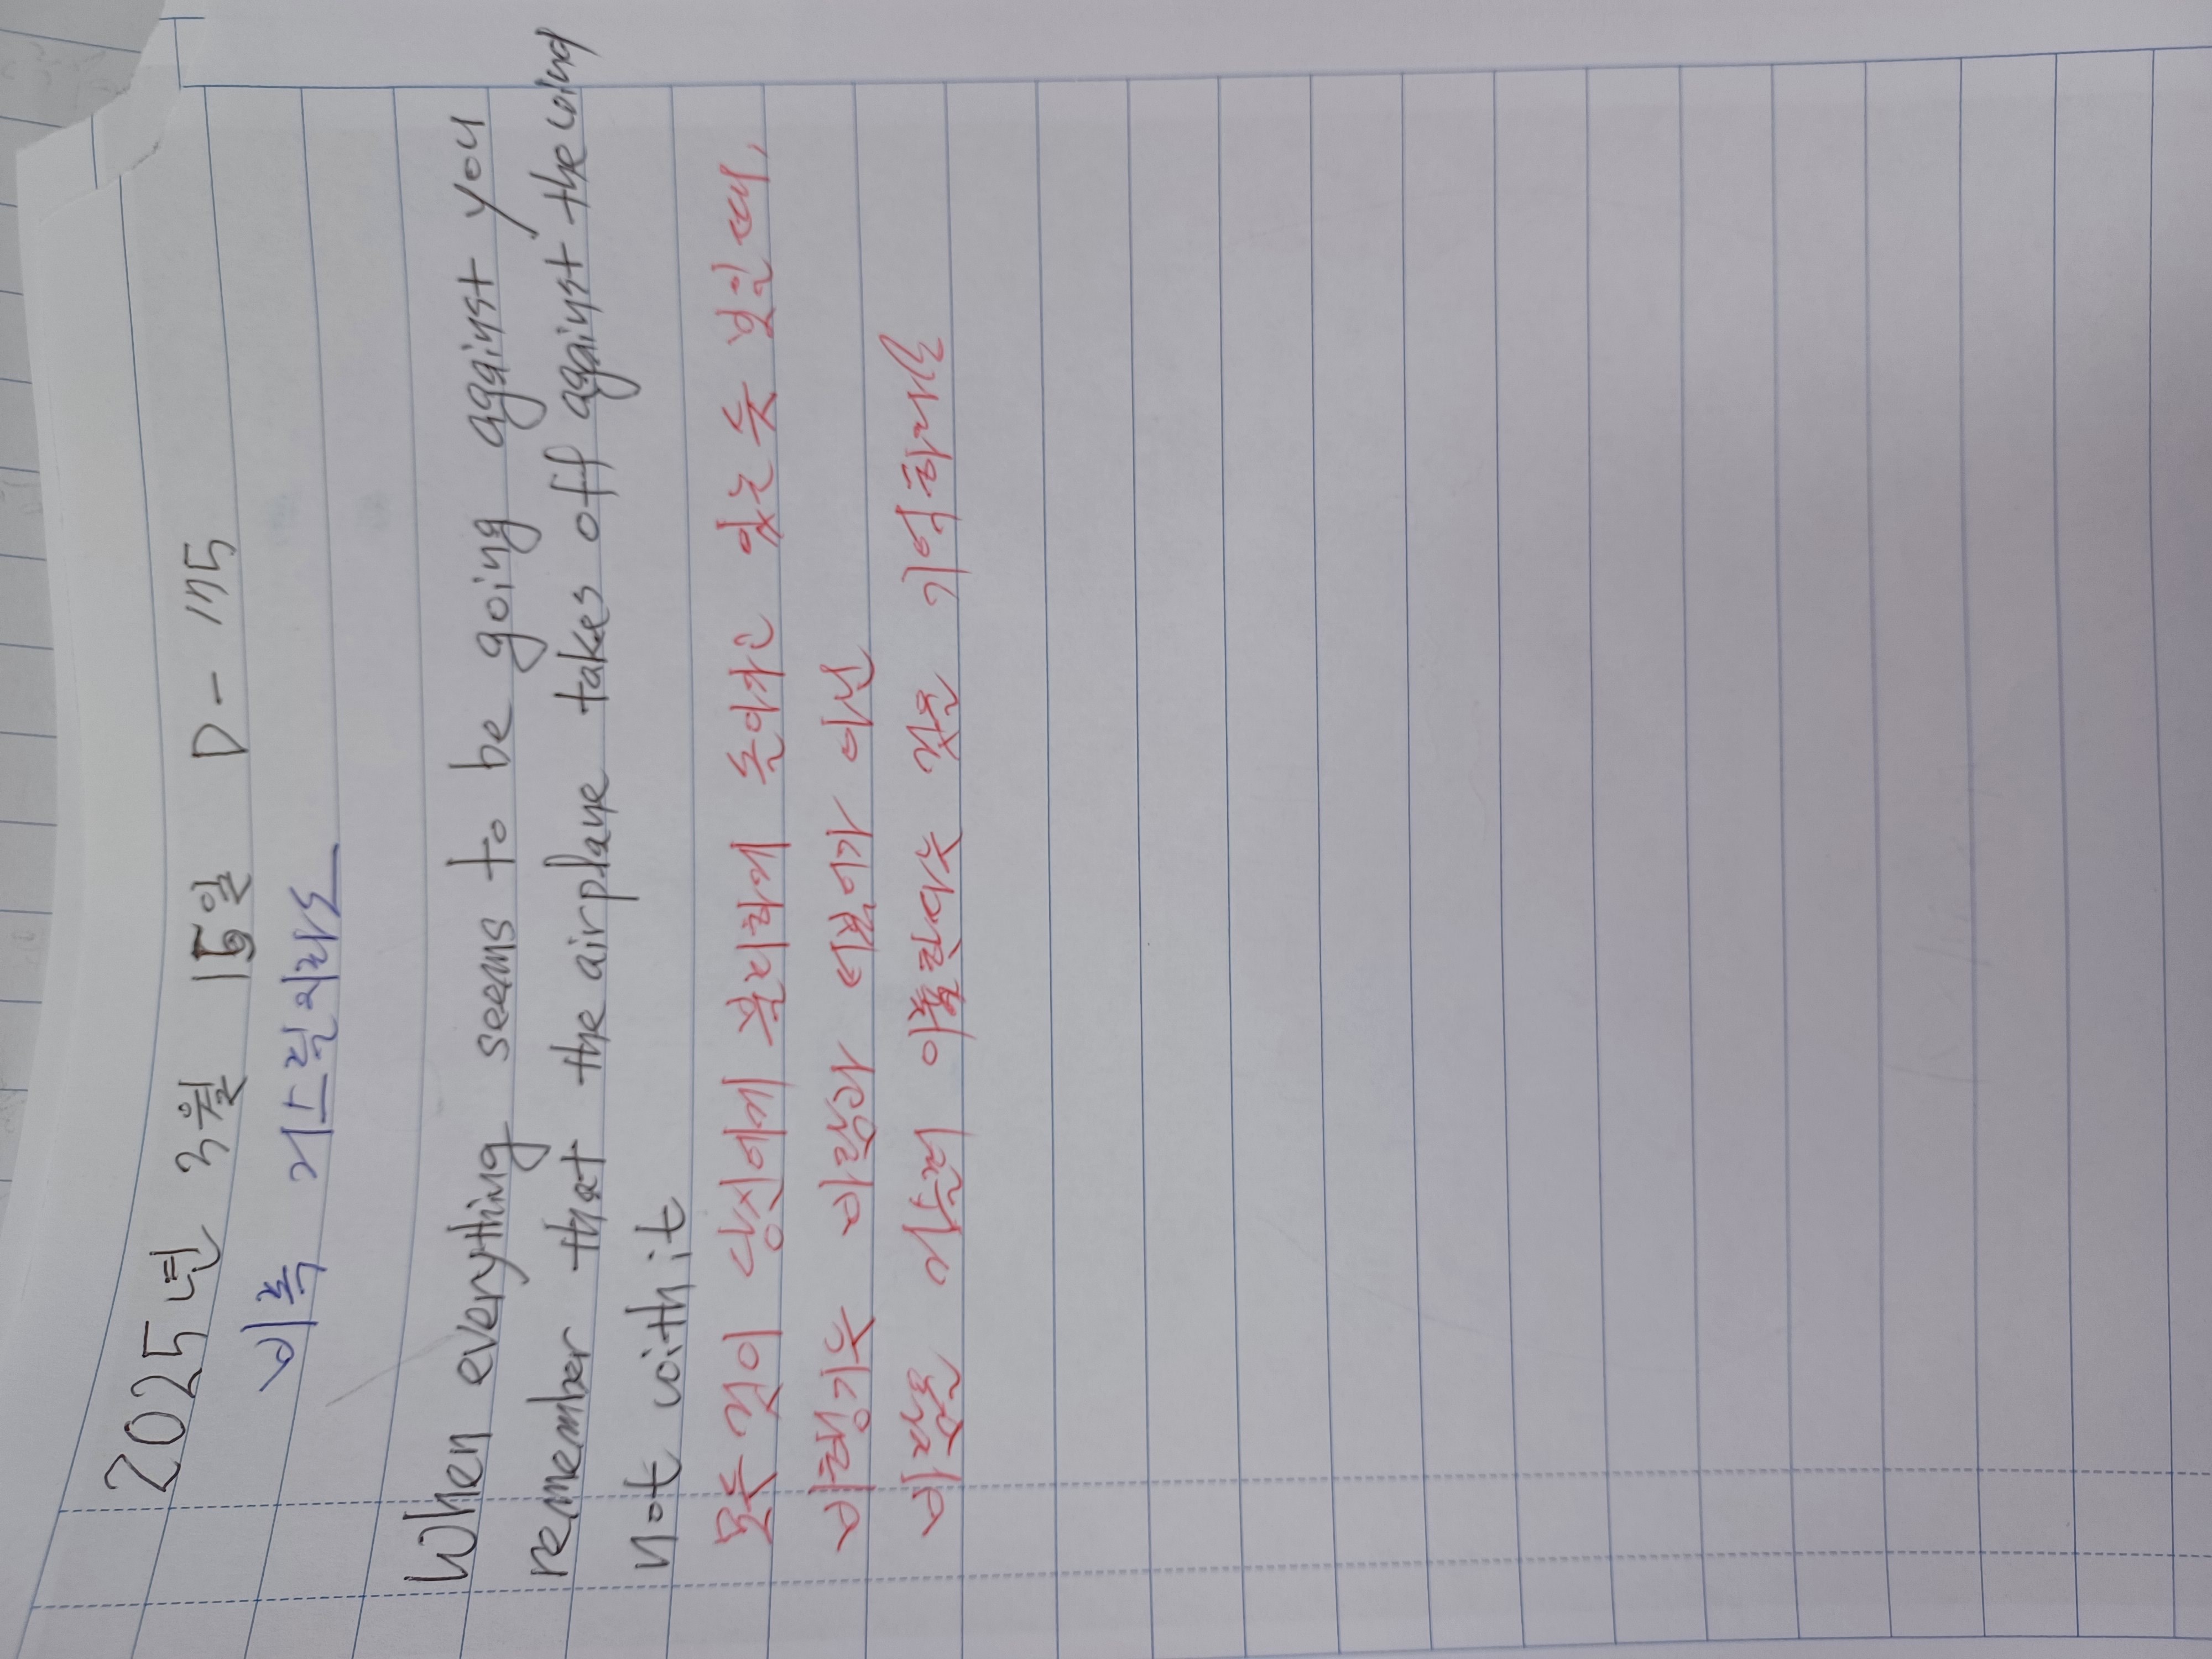 2025년 3월 15일 D-175
비록
When everything seems to be going against you
remember that the airplane takes off against the wind
not with it
모든 것이 당신에게 불리하게 돌아가고 있는 듯 보일 때,
비행기는 바람과 아닌
바람을 이륙한다는 것을 기억하길